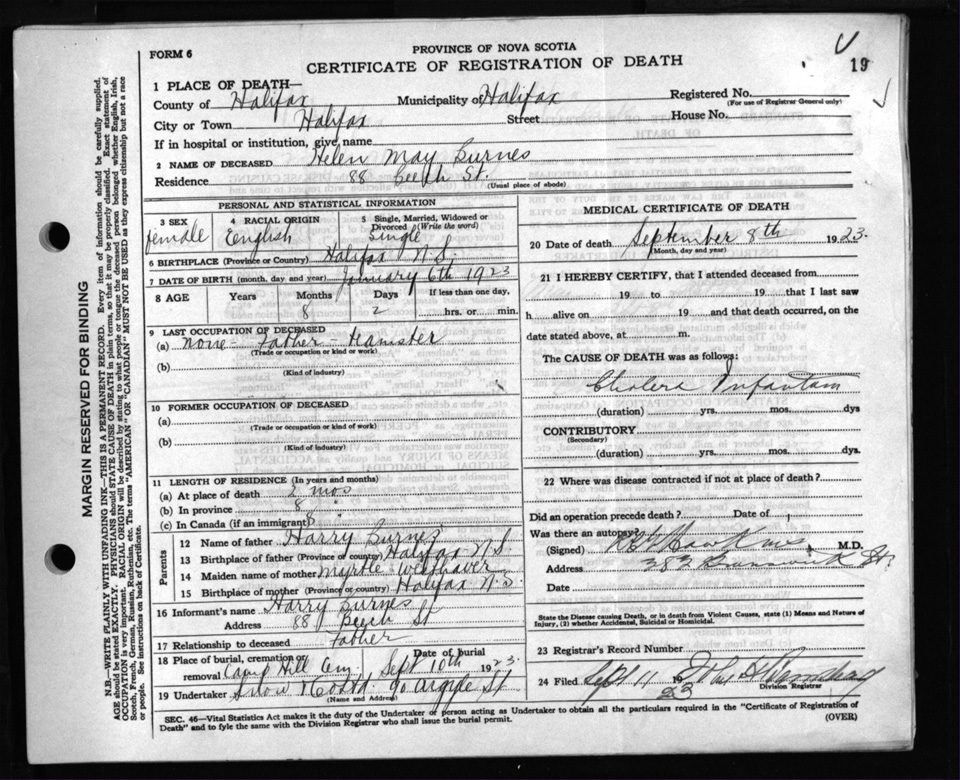 FORM 6
PROVINCE OF NOVA SCOTIA
CERTIFICATE OF REGISTRATION OF DEATH
19
1 PLACE OF DEATH—
County of Halifax Municipality of Halifax Registered No.
(For use of Registrar General only)
City or Town Halifax Street House No.
If in hospital or institution, give name
2 NAME OF DECEASED Helen May Burnes
Residence 88 Beech St.
(Usual place of abode)
PERSONAL AND STATISTICAL INFORMATION
3 SEX 4 RACIAL ORIGIN 5 Single, Married, Widowed or Divorced (Write the word)
female English Single
6 BIRTHPLACE (Province or Country) Halifax N.S.
7 DATE OF BIRTH (month, day, and year) January 6th 1923
8 AGE Years Months Days If less than one day,
8 2 hrs. or min.
9 LAST OCCUPATION OF DECEASED
(a) none - Father -
(Trade or occupation or kind of work)
(b)
(Kind of industry)
10 FORMER OCCUPATION OF DECEASED
(a)
(Trade or occupation or kind of work)
(b)
(Kind of industry)
11 LENGTH OF RESIDENCE (In years and months)
(a) At place of death 8 mos
(b) In province 8 "
(c) In Canada (if an immigrant) 8 "
Parents
12 Name of father Harry Burnes
13 Birthplace of father (Province or country) Halifax N.S.
14 Maiden name of mother Myrtle Westhaver
15 Birthplace of mother (Province or Country) Halifax N.S.
16 Informant's name Harry Burnes
Address 88 Beech St
17 Relationship to deceased Father
18 Place of burial, cremation or removal Camp Hill Cem. Date of burial Sept 10th 1923.
19 Undertaker Snow & Co Ltd 90 Argyle St
(Name and Address)
MEDICAL CERTIFICATE OF DEATH
20 Date of death September 8th 1923.
(Month, day and year)
21 I HEREBY CERTIFY, that I attended deceased from
19 to 19 that I last saw
h alive on 19 and that death occurred, on the
date stated above, at m.
The CAUSE OF DEATH was as follows:
Cholera Infantum
(duration) yrs. mos. dys
CONTRIBUTORY
(Secondary)
(duration) yrs. mos. dys.
22 Where was disease contracted if not at place of death?
Did an operation precede death? Date of
Was there an autopsy?
(Signed) M.D.
Address 282 Brunswick St.
Date
State the Disease causing Death, or in death from Violent Causes, state (1) Means and Nature of Injury, (2) whether Accidental, Suicidal or Homicidal.
23 Registrar's Record Number
24 Filed Sept 11 19 23
Division Registrar
SEC. 46—Vital Statistics Act makes it the duty of the Undertaker or person acting as Undertaker to obtain all the particulars required in the "Certificate of Registration of
Death" and to fyle the same with the Division Registrar who shall issue the burial permit.
(OVER)
MARGIN RESERVED FOR BINDING
N.B.—WRITE PLAINLY WITH UNFADING INK—THIS IS A PERMANENT RECORD. Every item of information should be carefully supplied.
AGE should be stated EXACTLY. PHYSICIANS should STATE CAUSE OF DEATH in plain terms, so that it may be properly classified. Exact statement of
OCCUPATION is very important. RACIAL ORIGIN will be described by stating to what people or tongue the deceased person belonged whether English, Irish,
Scotch, French, German, Russian, Ruthenian, etc. The terms "AMERICAN" or "CANADIAN" MUST NOT BE USED as they express citizenship but not a race
or people. See instructions on back of Certificate.